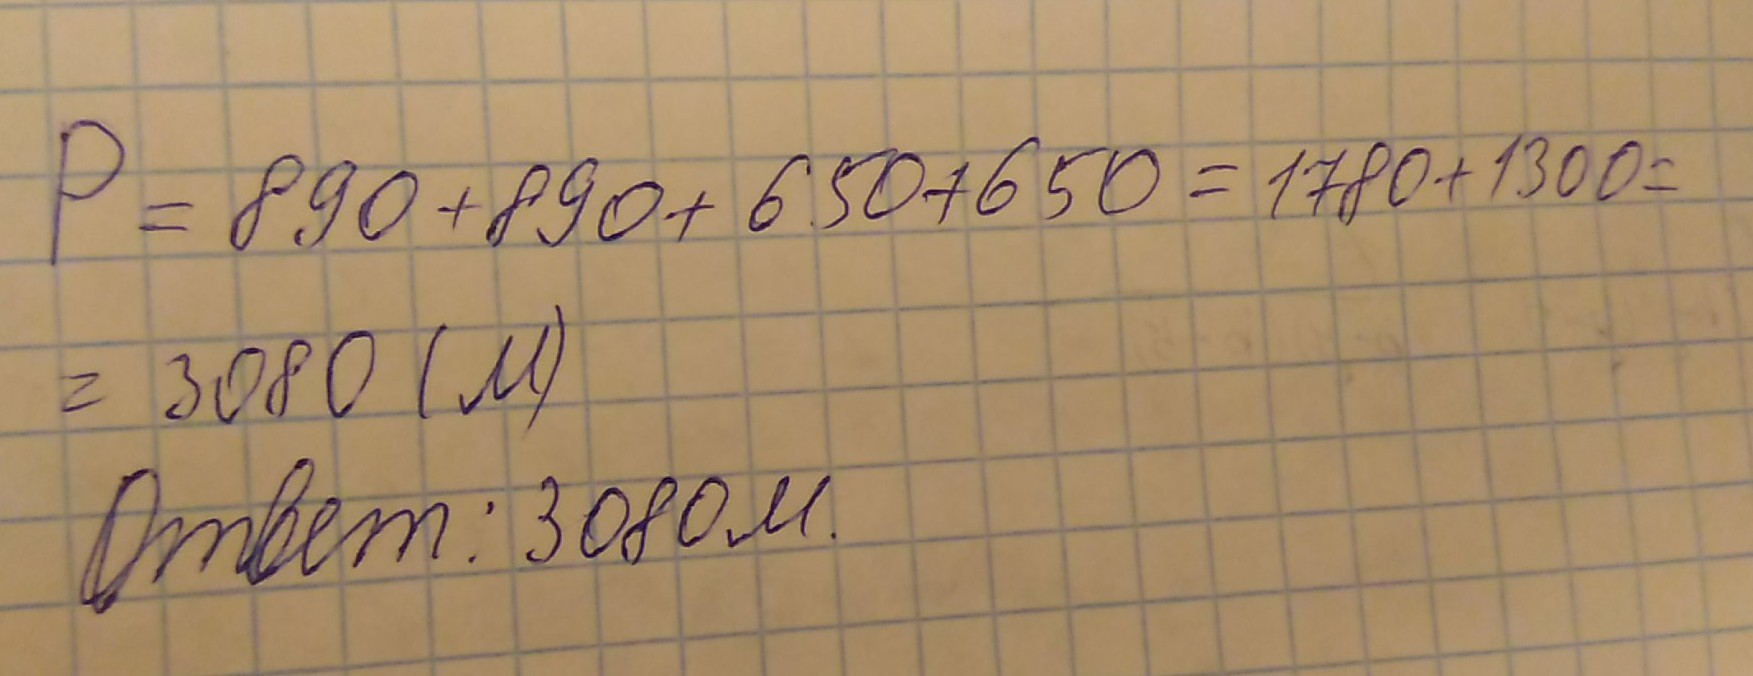 P = 890 + 890 + 650 + 650 = 1780 + 1300 =
= 3080 (м)
Ответ: 3080 м.